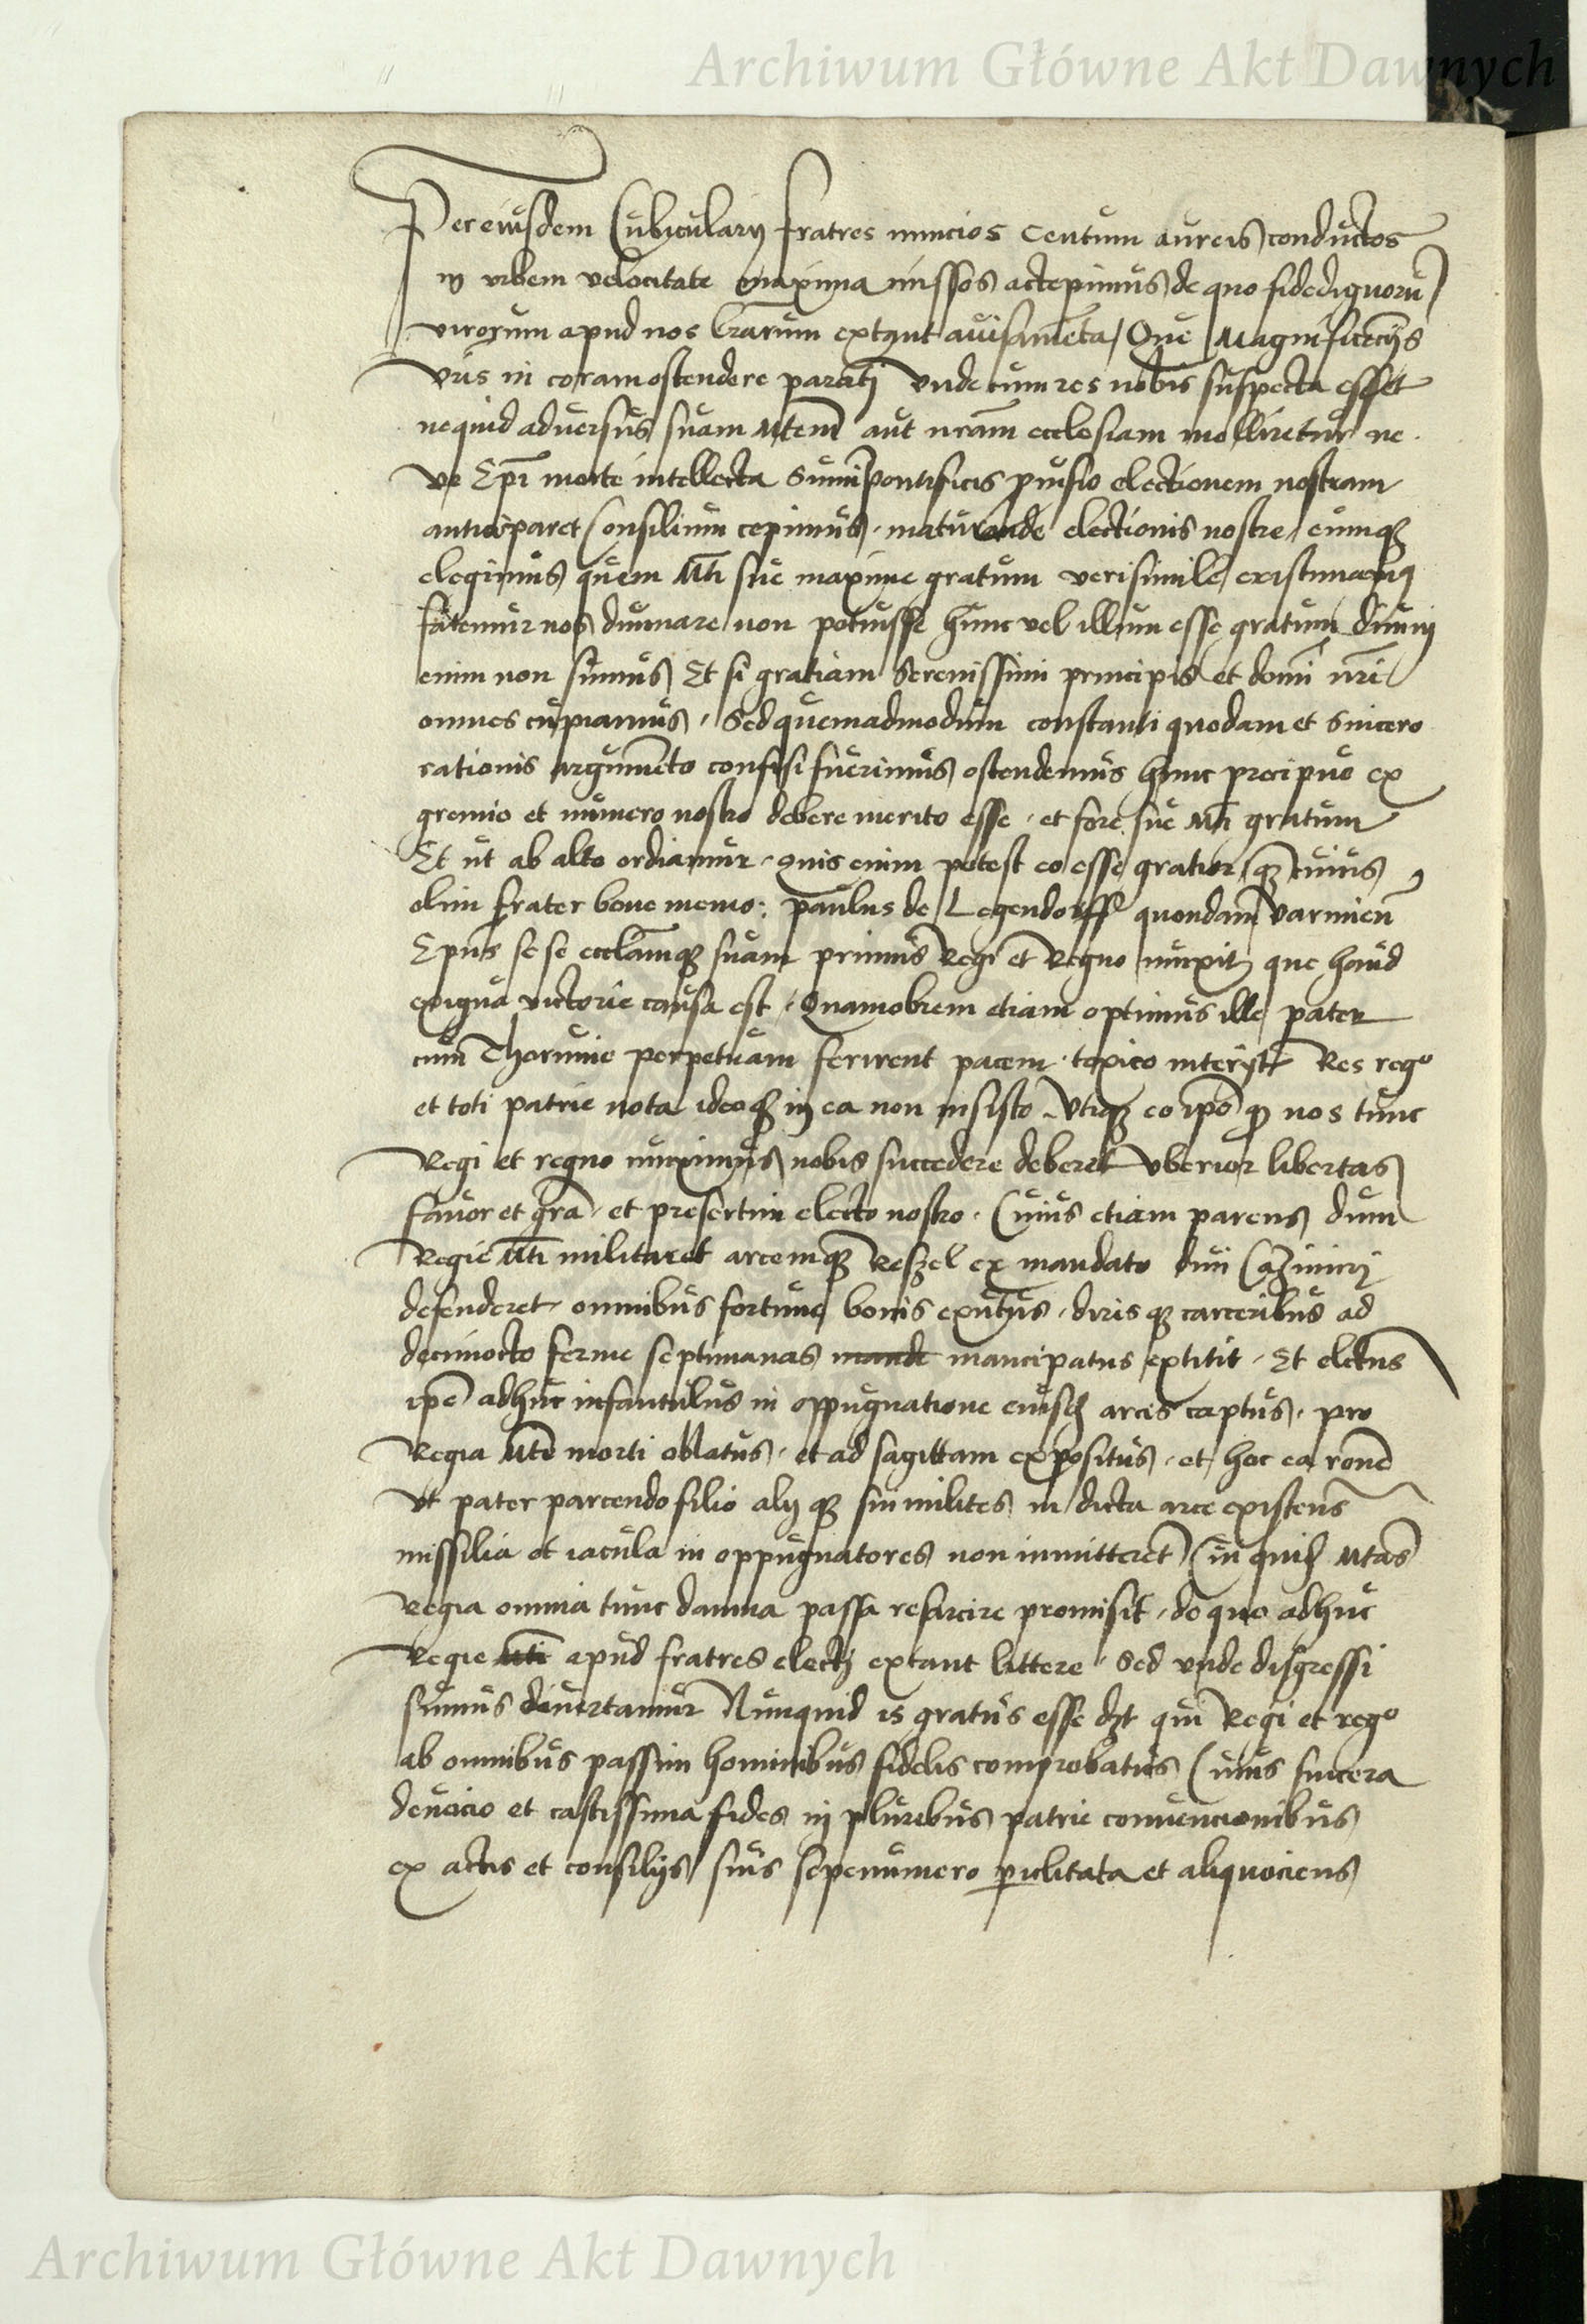 Archiwum Główne Akt Dawnych
Per eiusdem Cubicularij fratres nuncios Centum aureis conductos
in vrbem velocitate maxima missos accepimus de quo fidedignorũ
virorum apud nos lrarum extant auisamẽta Que Magnificẽcijs
vris in coram ostendere parati Vnde cum res nobis suspecta esset
nequid aduersus suam Mtem aut nrãm ecclesiam molliretur ne
ve Epi morte intellecta Summi pontificis puisio electionem nostram
anticiparet Consilium cepimus maturande electionis nostre eumq3
elegimus quem Mti sue maxime gratum verisimile existimamus
fatemur nos diuinare non potuisse hunc vel illum esse gratum diuinj
enim non sumus Et si gratiam Serenissimi principis et domi nri
omnes cupiamus Sed quemadmodum constanti quodam et sincero
rationis argumẽto confisi fuerimus ostendemus hunc precipue ex
gremio et numero nostro debere merito esse et fore sue Mti gratum
Et ut ab alto ordiamur quis enim potest eo esse gratior q3 cuius
olim frater bone memo: paulus de Legendorff quondam varmien̄
Epus sese ecclamq3 suam primus Regi et Regno iunxit que haud
exigua victorie causa est Quamobrem etiam optimus ille pater
cum Thorunie perpetuam ferirent pacem toxico interijt Res rego
et toti patrie nota ideoq3 in ea non insisto Vtiq3 eo ipo q nos tunc
Regi et regno iunximus nobis succedere deberet vberior libertas
fauor et gra et presertim electo nostro Cuius etiam parens dum
Regie Mti militaret arcemq3 Reszel ex mandato diui Cazimirj
defenderet omnibus fortune bonis exutus diris q3 carceribus ad
decimocto ferme septimanas mande mancipatus extitit Et electus
ipe adhuc infantulus in oppugnatione eiusd arcis captus pro
Regia Mte morti oblatus et ad sagittam expositus et hoc ea rone
Vt pater parcendo filio alij q3 sui milites in dicta arce existens
missilia et iacula in oppugnatores non inmitteret Cui quid Mtas
Regia omnia tunc damna passa resarcire promisit de quo adhuc
Regie Mti apud fratres electj extant littere Sed vnde disgressi
sumus diuertamur Nunquid is gratus esse dzt qui Regi et rego
ab omnibus passim hominibus fidelis comprobatus Cuius sincera
deuocio et castissima fides in pluribus patrie conuencionibus
ex actis et consilijs suis sepenumero piclitata et aliquociens
Archiwum Główne Akt Dawnych